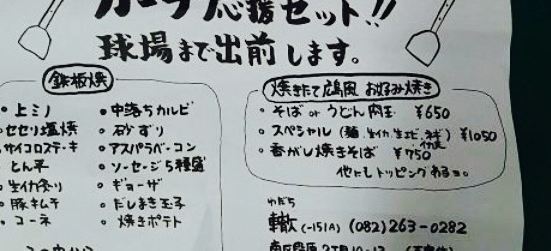 カープ応援セット!!
球場まで出前します。
鉄板焼
・上ミノ
・セセリ塩焼
サイコロステーキ
・とん平
・生イカ造り
・豚キムチ
・コーネ
・中落ちカルビ
・砂ずり
・アスパラベーコン
・ソーセージ5種盛
・ギョーザ
・だしまき玉子
・焼きポテト
焼きたて広島風 お好み焼き
・そば or うどん 肉玉 ¥650
・スペシャル (麺、生イカ、生エビ、ネギ付) ¥1050
・香がし焼きそば ¥750
他にトッピングあるヨ。
わだち
轍 (-151A) (082)263-0282